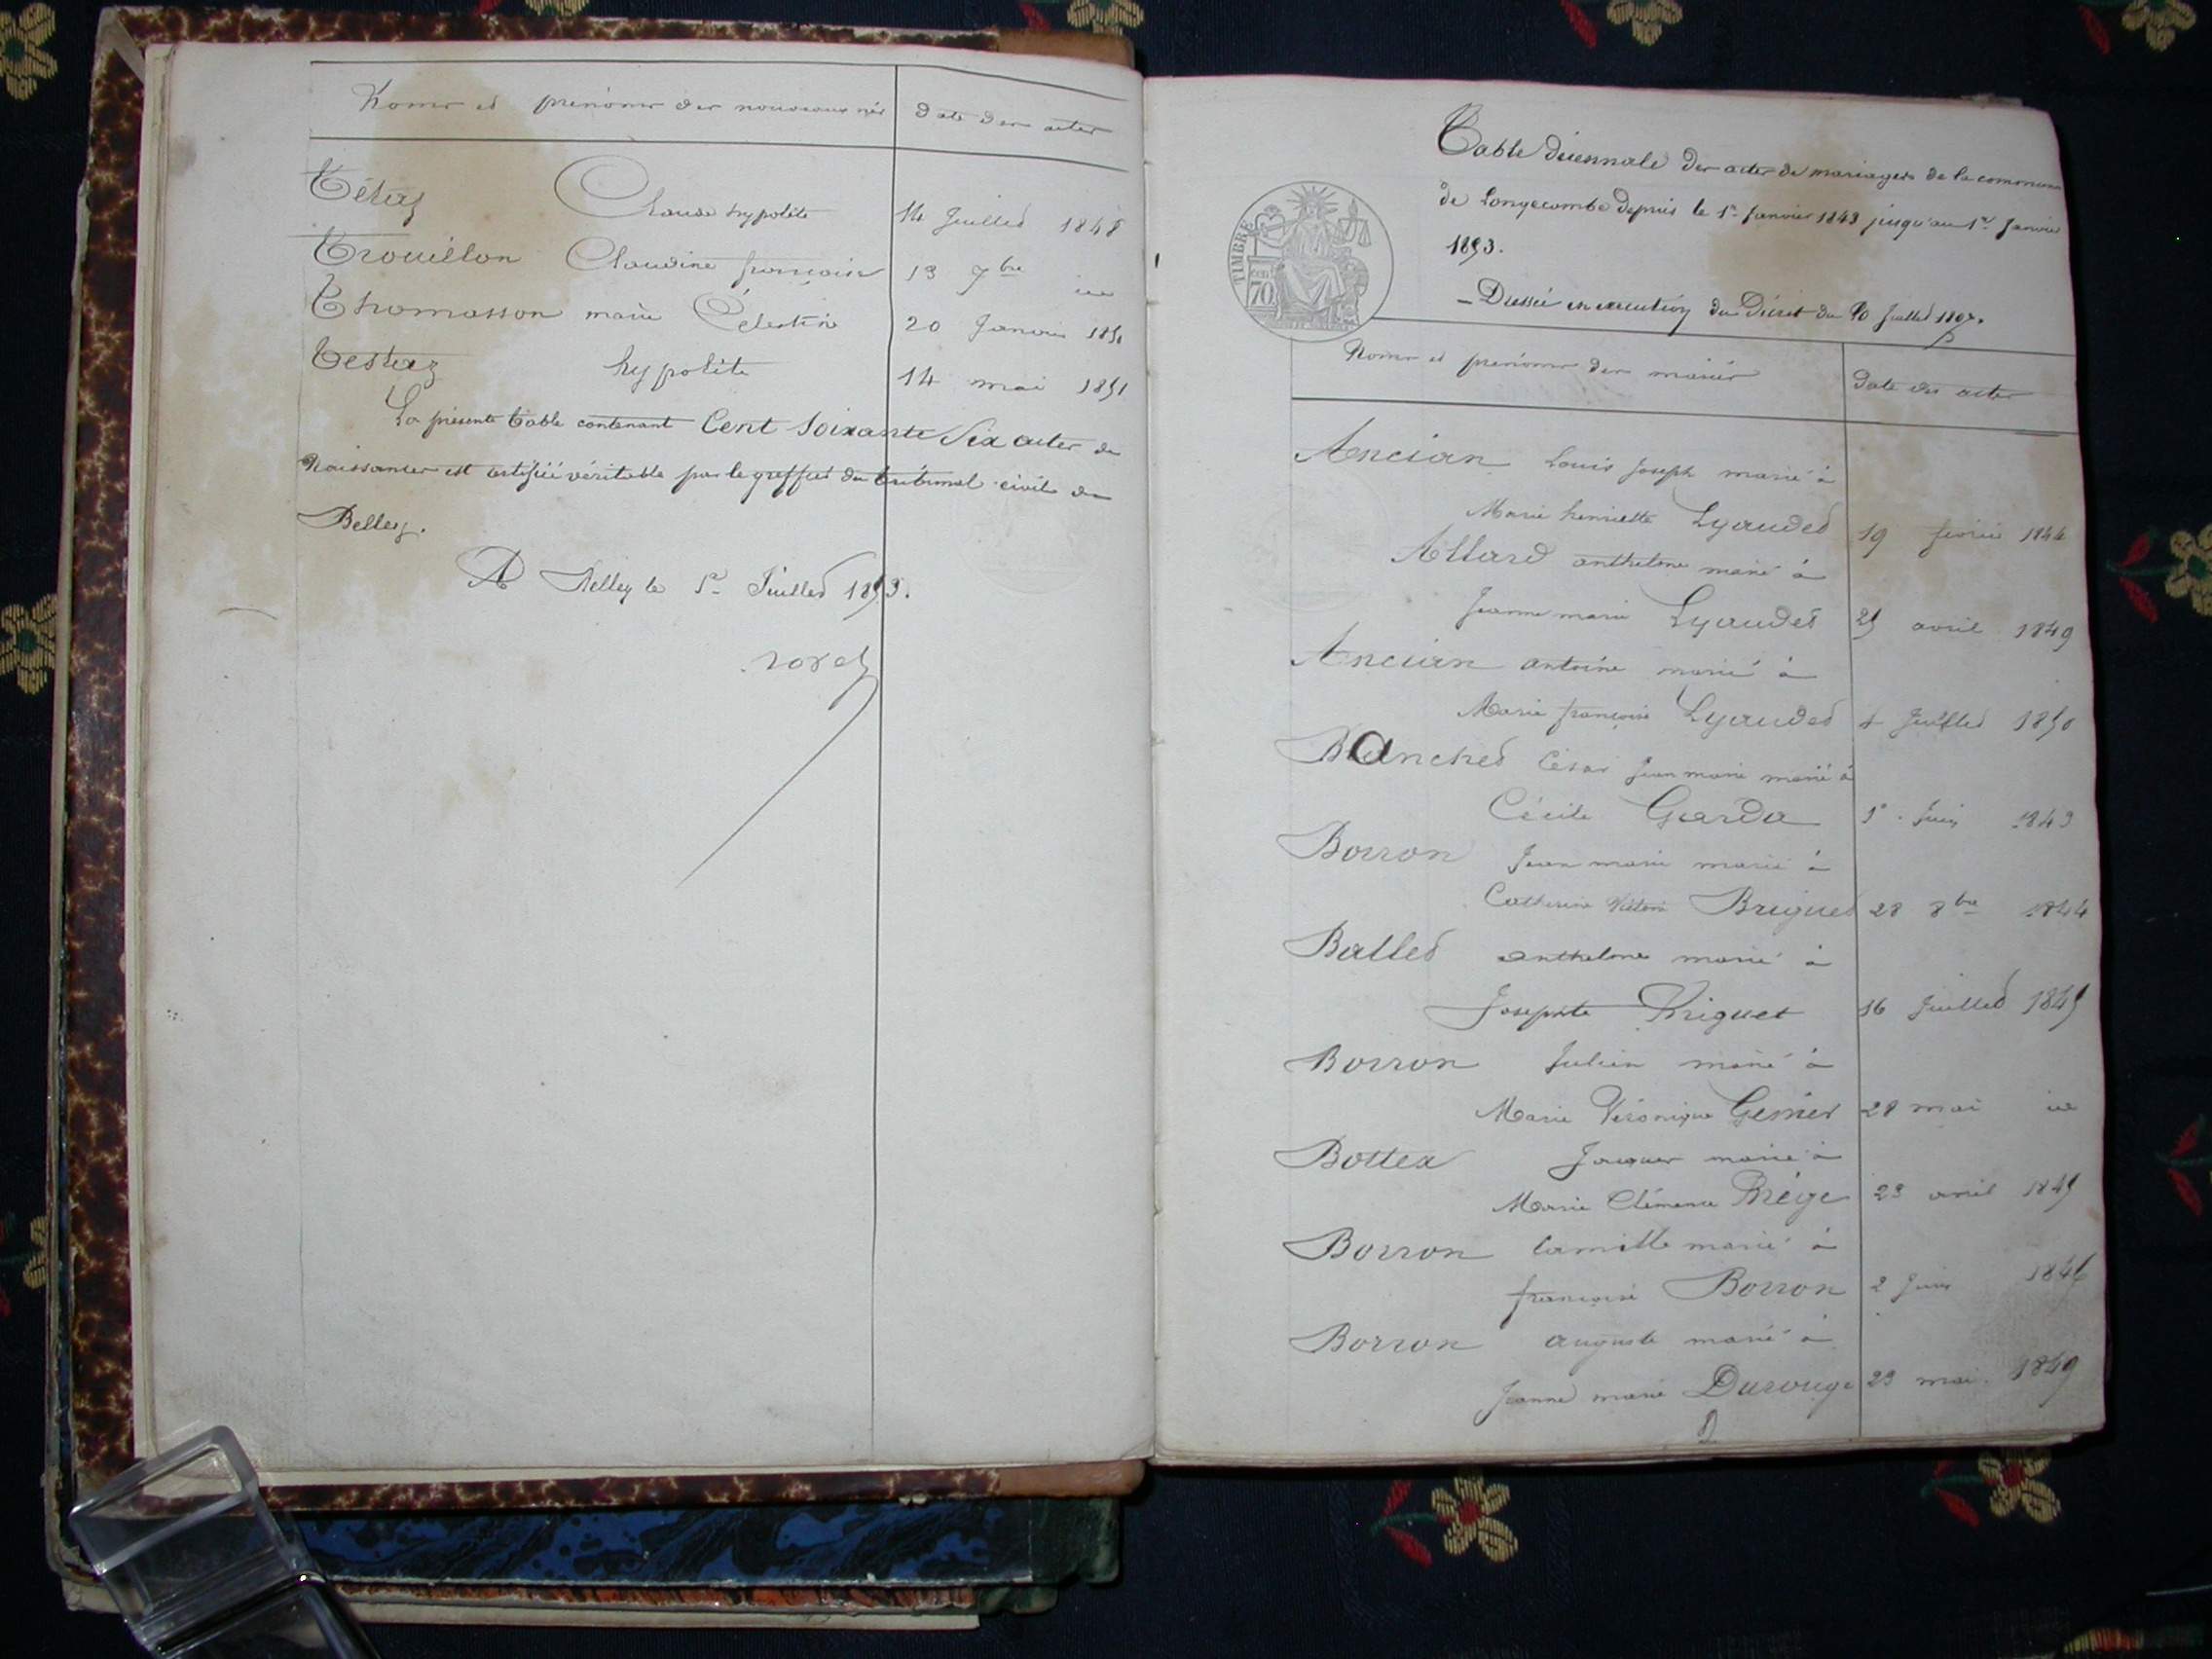 Noms et prénoms des nouveaux nés
Date des actes
Tétaz Claude hypolite 14 Juillet 1848
Trouillon Claudine françoise 13 7bre
Thomasson marie Célestine 20 Janvier 1850
Testaz hypolite 14 mai 1851
La présente table contenant Cent Soixante Six actes de
Naissances est certifiée véritable par le greffier du tribunal civil de
Belley.
A Belley le 1er Juillet 1853.
Table décennale des actes de mariages de la commune
de Longecombe depuis le 1er Janvier 1843 jusqu'au 1er Janvier
1853.
TIMBRE
70
— Dressée en exécution du Décret du 20 Juillet 1807.
Noms et prénoms des mariés
Date des actes
Ancian Louis Joseph marié à
Marie henriette Lyaudet 19 février 1844
Allard anthelme marié à
Jeanne marie Lyaudet 25 avril 1849
Ancian antoine marié à
Marie françoise Lyaudet 4 Juillet 1850
Blanchet César Jean marie marié à
Cécile Garda 1er Juin 1843
Borron Jean marie marié à
Catherine Victoire Briguet 28 8bre 1844
Ballet anthelme marié à
Josephte Briguet 16 Juillet 1845
Borron Julien marié à
Marie Véronique Genier 28 mai
Bottex Jacques marié à
Marie Clémence Brége 23 avril 1845
Borron Camille marié à
françoise Borron 2 Juin 1846
Borron auguste marié à
Jeanne marie Durouge 23 mai 1849